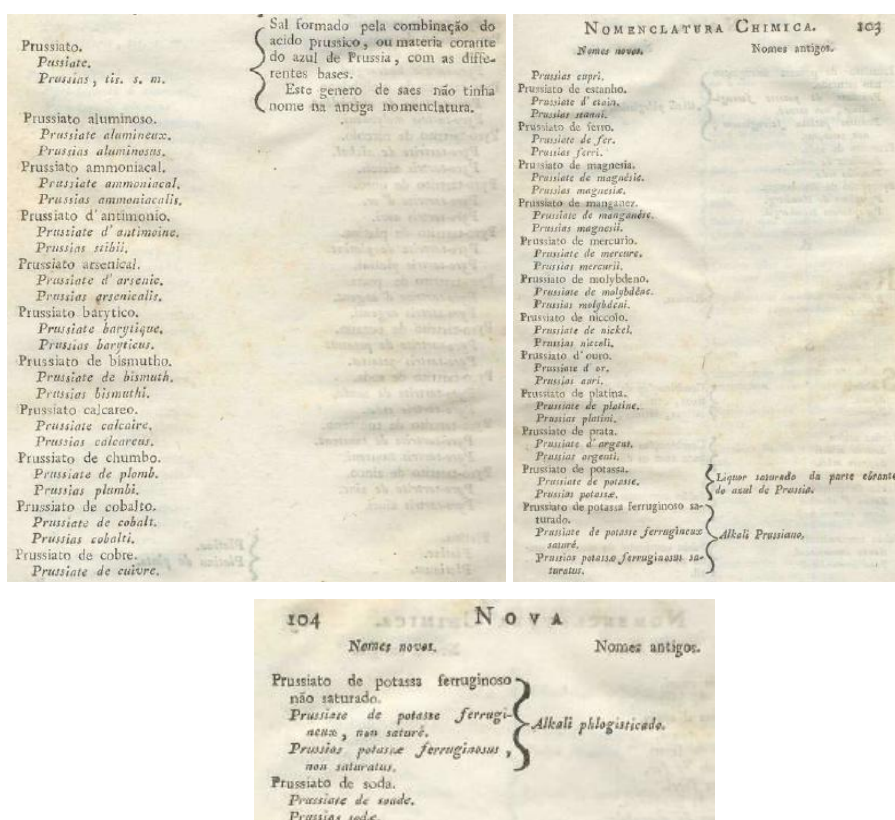 Prussiato.
Pussiate.
Prussias, tis. s. m.
Sal formado pela combinação do
acido prussico, ou materia corante
do azul de Prussia, com as diffe-
rentes bases.
Este genero de saes não tinha
nome na antiga nomenclatura.
Prussiato aluminoso.
Prussiate alumineux.
Prussias aluminosus.
Prussiato ammoniacal.
Prussiate ammoniacal.
Prussias ammoniacalis.
Prussiato d'antimonio.
Prussiate d'antimoine.
Prussias stibii.
Prussiato arsenical.
Prussiate d'arsenic.
Prussias arsenicalis.
Prussiato barytico.
Prussiate barytique.
Prussias baryticus.
Prussiato de bismutho.
Prussiate de bismuth.
Prussias bismuthi.
Prussiato calcareo.
Prussiate calcaire.
Prussias calcareus.
Prussiato de chumbo.
Prussiate de plomb.
Prussias plumbi.
Prussiato de cobalto.
Prussiate de cobalt.
Prussias cobalti.
Prussiato de cobre.
Prussiate de cuivre.
NOMENCLATURA CHIMICA. 103
Nomes novos. Nomes antigos.
Prussias cupri.
Prussiato de estanho.
Prussiate d'etain.
Prussias stanni.
Prussiato de ferro.
Prussiate de fer.
Prussias ferri.
Prussiato de magnesia.
Prussiate de magnésie.
Prussias magnesiæ.
Prussiato de manganez.
Prussiate de manganèse.
Prussias magnesii.
Prussiato de mercurio.
Prussiate de mercure.
Prussias mercurii.
Prussiato de molybdeno.
Prussiate de molybdène.
Prussias molybdeni.
Prussiato de niccolo.
Prussiate de nickel.
Prussias niccoli.
Prussiato d'ouro.
Prussiate d'or.
Prussias auri.
Prussiato de platina.
Prussiate de platine.
Prussias platini.
Prussiato de prata.
Prussiate d'argent.
Prussias argenti.
Prussiato de potassa.
Prussiate de potasse.
Prussias potassæ.
Liquor saturado da parte córante
do azul de Prussia.
Prussiato de potassa ferruginoso sa-
turado.
Prussiate de potasse ferrugineux
saturé.
Prussias potassæ ferruginosus sa-
turatus.
Alkali Prussiano.
104 NOVA
Nomes novos. Nomes antigos.
Prussiato de potassa ferruginoso
não saturado.
Prussiate de potasse ferrugi-
neux, non saturé.
Prussias potassæ ferruginosus,
non saturatus.
Alkali phlogisticado.
Prussiato de soda.
Prussiate de soude.
Prussias sodæ.